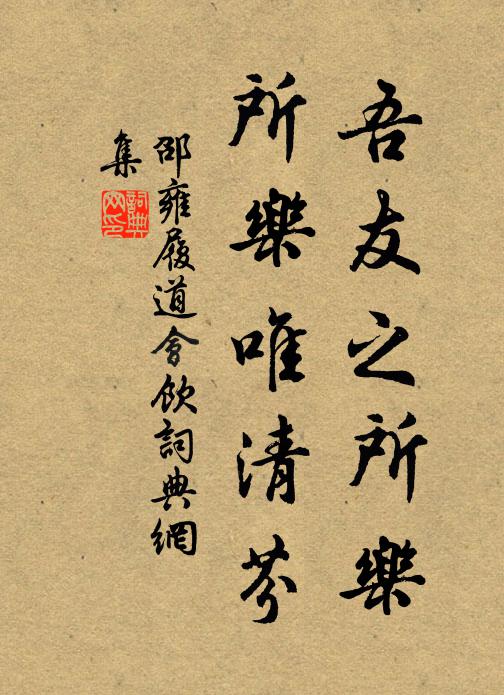 吾友之所樂
所樂唯清芬
邵雍履道會飲詞典網
集
詞典网印